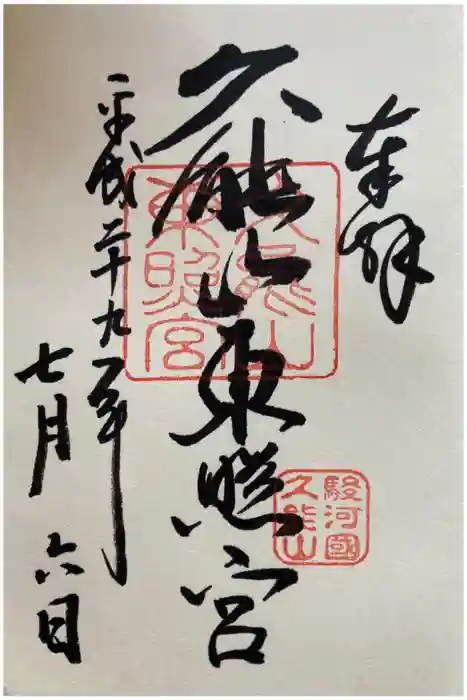 奉拝
久能山東照宮
平成二十九年
七月六日
久能山
東照宮
駿河國
久能山